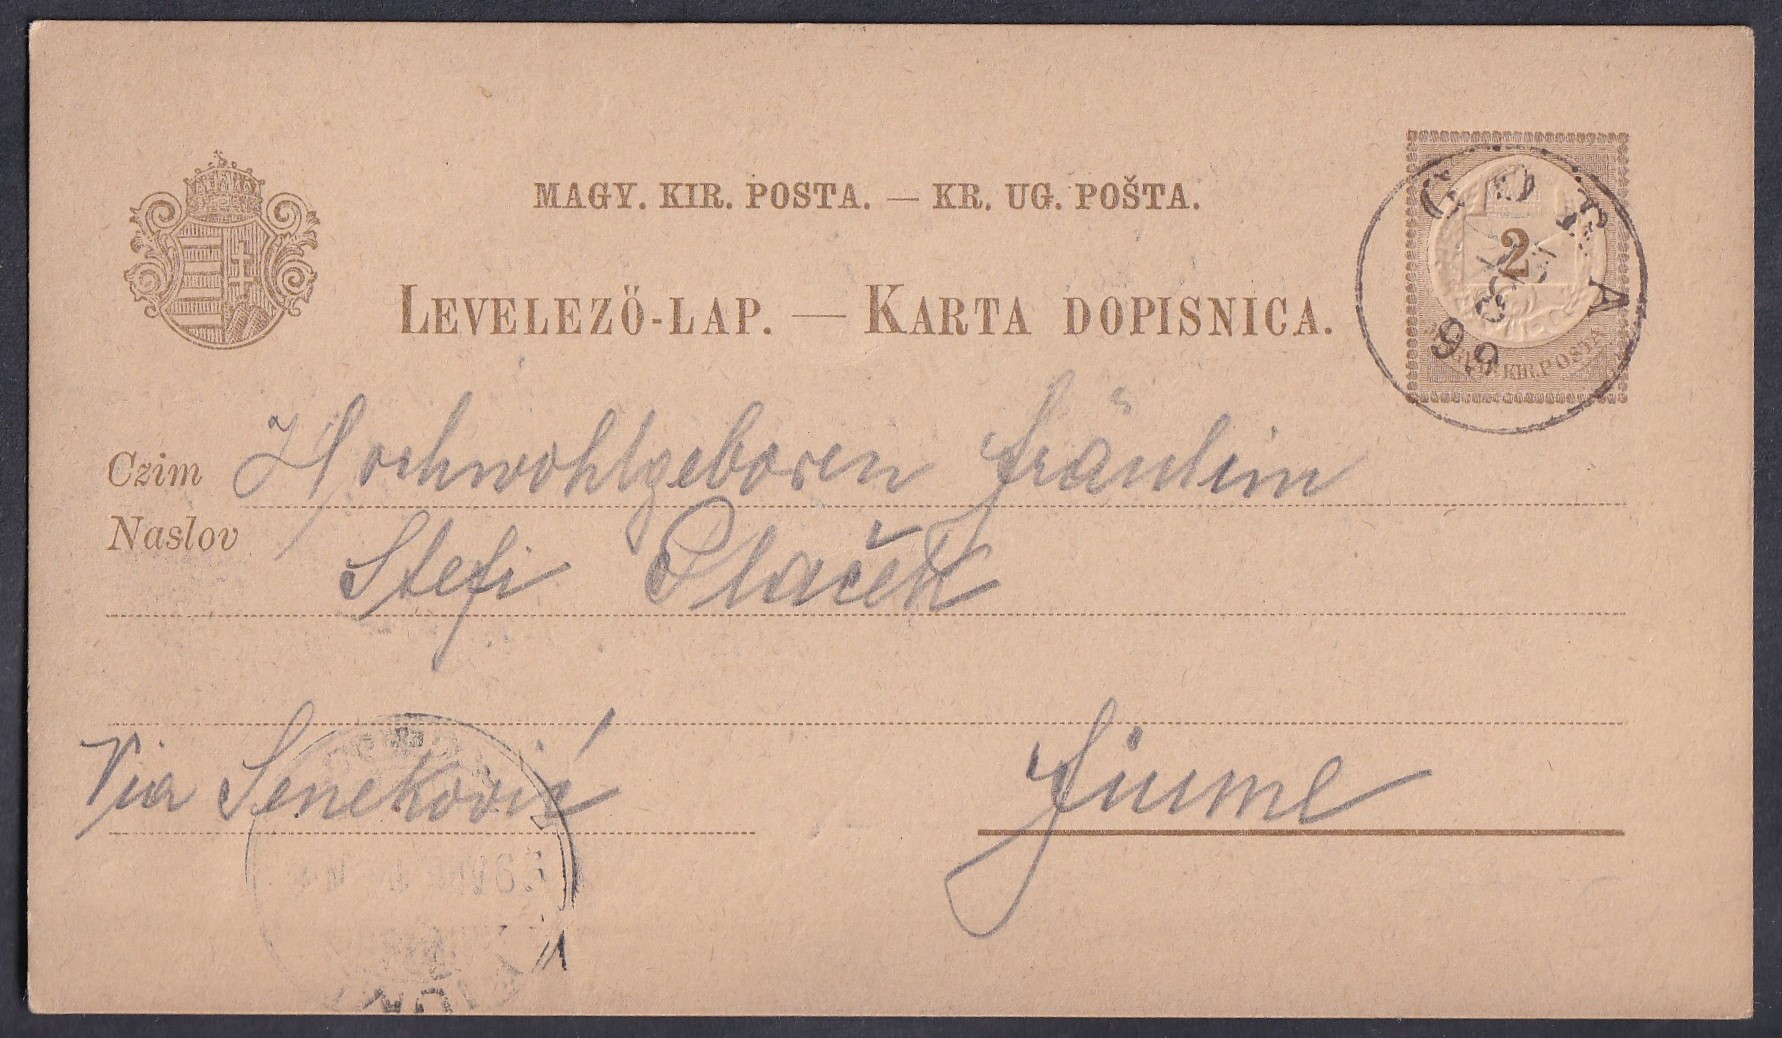 MAGY. KIR. POSTA. — KR. UG. POŠTA.
LEVELEZŐ-LAP. — KARTA DOPISNICA.
2
KIR. POSTA
99
Czim Hochwohlgeboren Fräulein
Naslov Stefi Plaček
Via Seneković Fiume